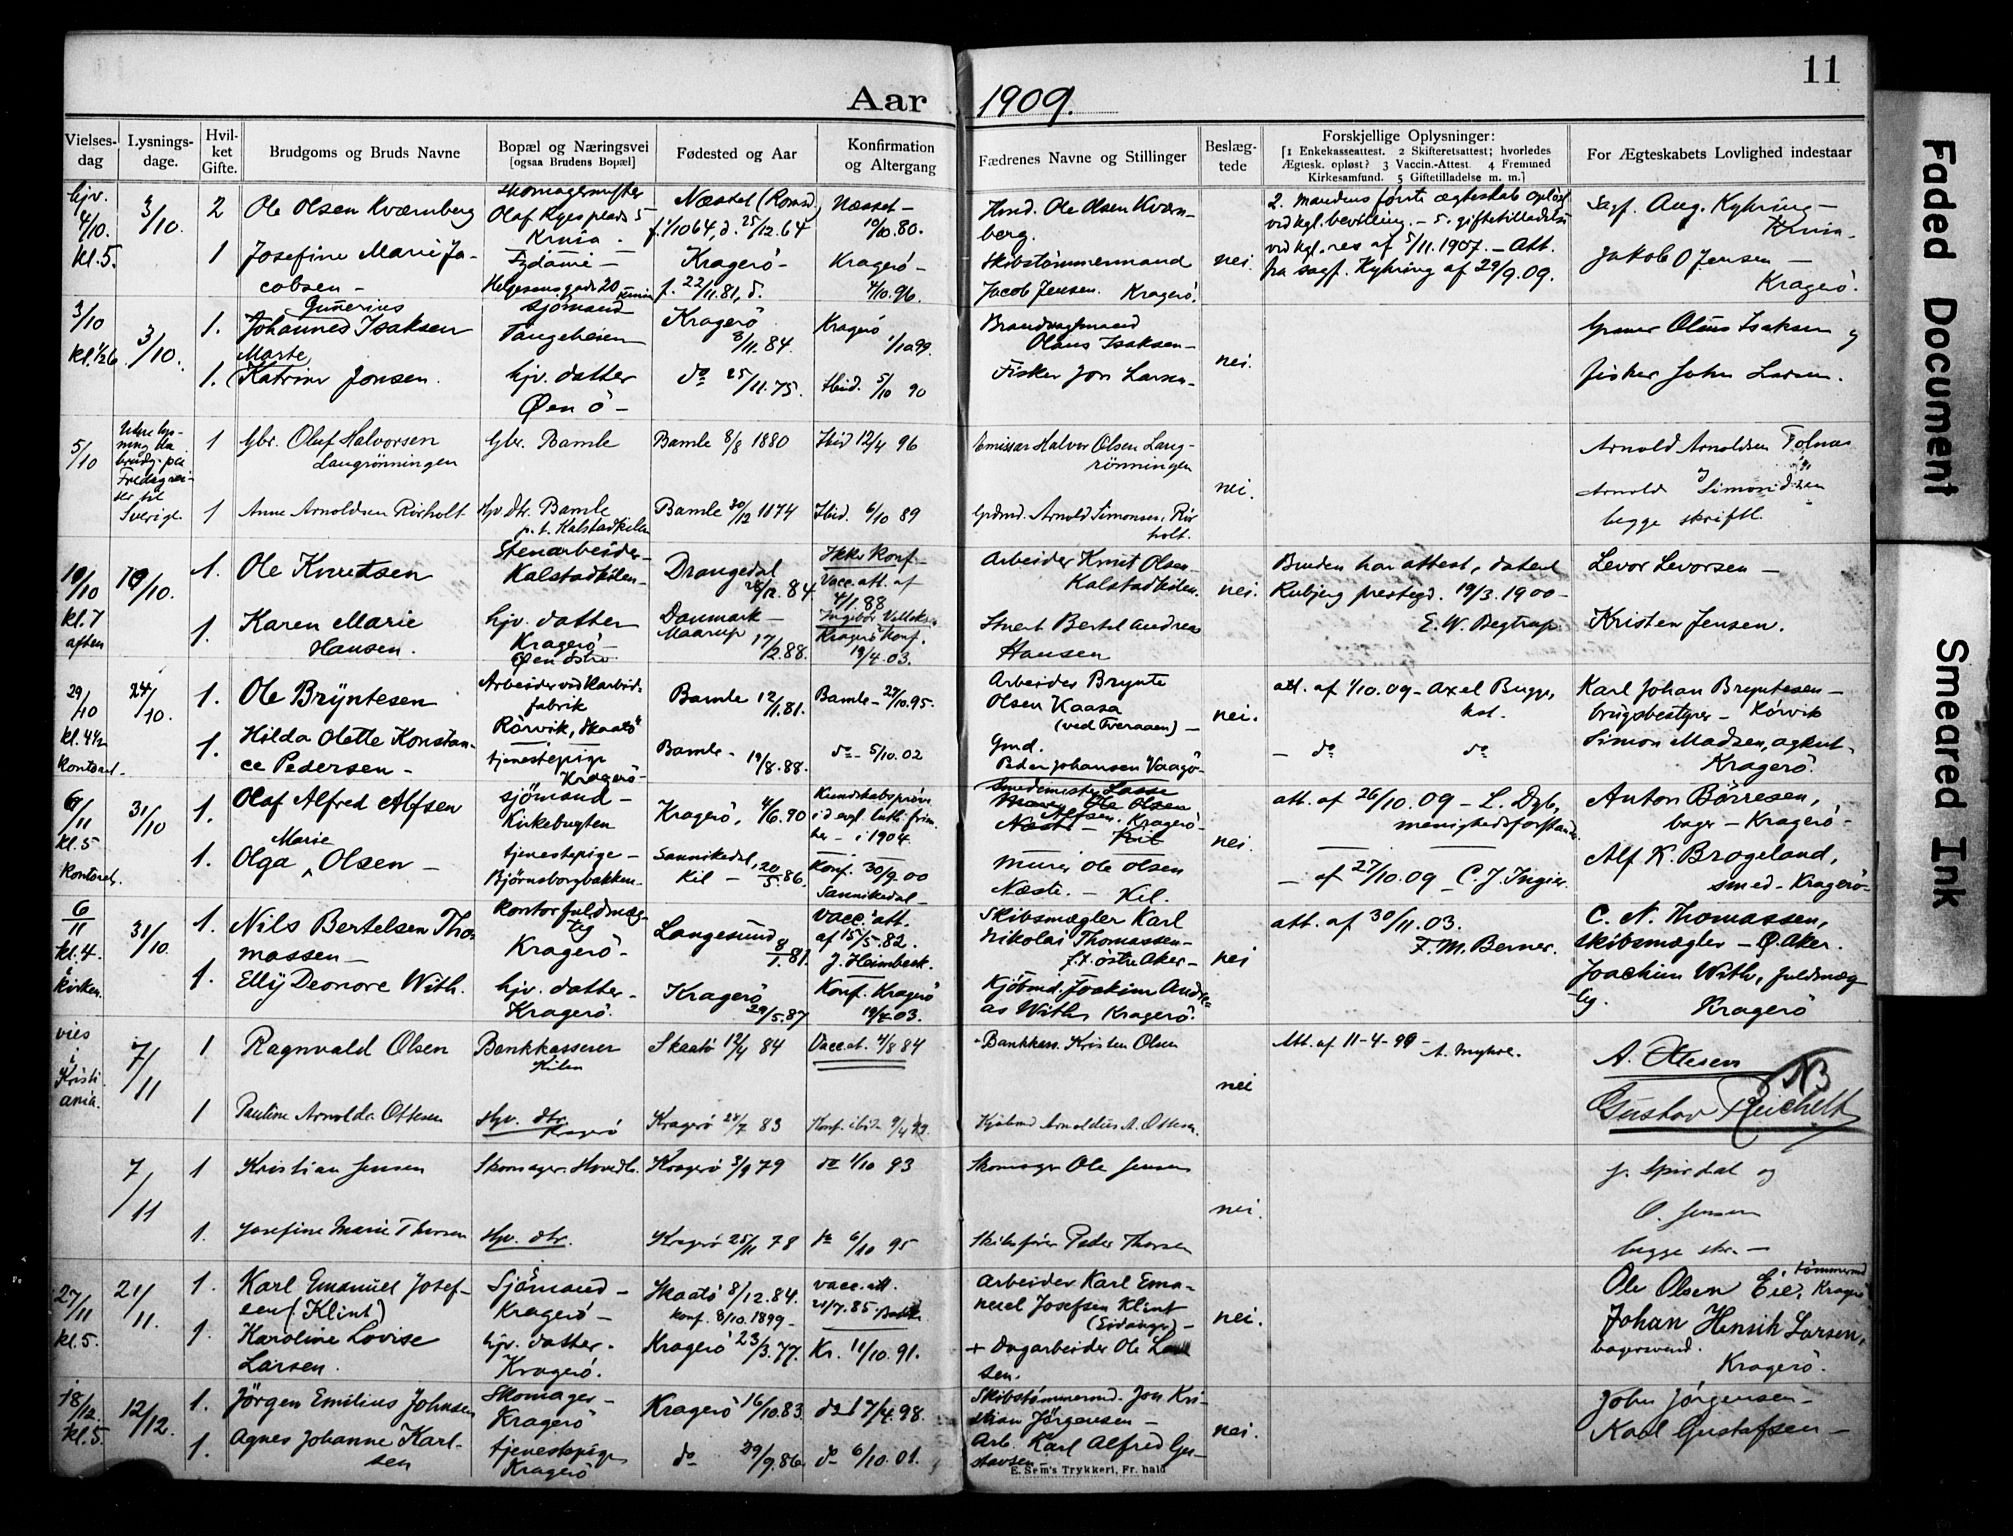 11
Aar 1909.
Vielses-dag
Lysnings-dage.
Hvil-ket Gifte.
Brudgoms og Bruds Navne
Bopæl og Næringsvei
[ogsaa Brudens Bopæl]
Fødested og Aar
Konfirmation og Altergang
Fædrenes Navne og Stillinger
Beslæg-tede
Forskjellige Oplysninger:
[1 Enkekasseattest. 2 Skifteretsattest; hvorledes
Ægtesk. opløst? 3 Vaccin.-Attest. 4 Fremmed
Kirkesamfund. 5 Giftetilladelse m. m.]
For Ægteskabets Lovlighed indestaar
4/10. kl. 5.
3/10.
2 Ole Olsen Kværnberg
Skomagermester
Olaf Ryes plads 5
Kr.nia.
Næsset (Romsd.)
25/12.64
Næsset -
10/10.80.
Ole Olsen Kværn-
berg.
2. mandens første ægteskab opløst
ved kgl. bevilling. - 5. giftetilladelse
ved kgl. res af 5/11.1907. - Att.
fra sagf. Kyhring af 29/9.09.
Sagf. Aug. Kyhring -
Kr.nia -
1 Josefine Marie Ja-
cobsen -
Helgesensgade 20
Kragerö -
f. 22/11.81, d.
Kragerö -
4/10.96.
Skibstömmermand
Jacob Jensen. Kragerö.
nei.
Jakob O Jensen -
Kragerö.
3/10 kl. 1/2 6
3/10.
1. Gunerius
Johannes Isaksen
sjömand
Tangeheien
Kragerö
8/11.84.
Kragerö
1/10 99.
Brandvagtmand
Olaus Isaksen -
nei.
Olaus Isaksen
1. Marte
Katrine Jonsen.
hjv. datter
Øen ö -
do 25/11.75.
Ibid. 5/10 90
Fisker Jon Larsen -
fisker John Larsen.
5/10
Sverige
1 Gbr. Oluf Halvorsen
Langrönningen
Gbr. Bamle
Bamle 8/8 1880
Ibid 12/4 96
Emissær Halvor Olsen Lang-
rönningen
nei.
Arnold Arnoldsen
1 Anne Arnoldsen Rörholt
hjv. dtr. Bamle
p. t. Kalstadkilen
Bamle 30/12 1874
Ibid. 6/10 89
Grdmd. Arnold Simonsen, Rör-
holt.
Arnold Simonsen
begge skriftl.
10/10 kl. 7 aften
10/10.
1. Ole Knutsen
Stenarbeider -
Kalstadkilen -
Drangedal
28/12.84
Ikke konf. -
Vacc. att. af
4/1.88
Arbeider Knut Olsen -
Kalstadkilen.
nei.
Bruden har attest, dateret
Rubjerg prestegd. 19/3.1900 -
E. W. Begtrup
Levor Levorsen -
1. Karen Marie
Hansen.
hjv. datter
Kragerö -
Danmark -
Maarup 17/2.88.
Kragerö konf.
19/4.03.
Bertel Andreas
Hansen
Kristen Jensen.
29/10 kl. 4 1/2 kontoret.
24/10.
1. Ole Bryntesen
Arbeider ved Karbid-
fabrik
Rörvik, Skaatö
Bamle 12/1.81.
Bamle - 27/10.95.
Arbeider Brynte
Olsen Kaasa
(ved Tveraaen) -
nei.
att. af 1/10.09 - Axel Bugge,
kst.
Karl Johan Bryntesen -
brugsbestyrer - Rörvik
1. Hilda Olette Konstan-
ce Pedersen -
tjenestepige
Kragerö -
Bamle - 19/8.88.
do - 5/10.02
Gmd.
Peder Johansen Vaagö -
- do do
Simon Madsen, agent -
Kragerö.
6/11 kl. 5 kontoret.
31/10
1. Olaf Alfred Alfsen
sjömand -
Kirkebugten
Kragerö, 4/6.80
Kundskabspröve
i 1904.
Smedemester Lasse
Alfsen, Kragerö -
nei.
att. af 26/10.09 - L. Dyb,
menighedsforstander
Anton Börresen,
bager - Kragerö -
1. Olga Marie Olsen -
tjenestepige -
Björnsborgbakken -
Sannikedal,
Kil - 20/5.86.
Konf. 30/9.00
Sannikedal -
Murer Ole Olsen
Næste. - Kil.
- af 27/10.09 - C. J. Ingier.
Alf K. Brogeland,
smed - Kragerö -
6/11 kl. 4. i kirken.
31/10.
1. Nils Bertelsen Tho-
massen -
Kontorfuldmæg-
tig
Kragerö -
Langesund
8/1.81.
Vacc. att.
af 15/5.82.
J. Heimbeck.
Skibsmægler Karl
Nikolai Thomassen -
f.t. östre Aker -
nei
att. af 30/11.03.
F. M. Berner.
C. N. Thomassen,
skibsmægler - Ø. Aker.
1. Elly Deonore With.
hjv. datter -
Kragerö.
Kragerö
29/5.87
Konf. Kragerö
19/4.03.
Kjöbmd. Joakim Andre-
as With, Kragerö.
Joachim With, fuldmæg-
tig.
Kragerö
vies i Kristi-ania.
7/11
1 Ragnvald Olsen
Bankkasserer
Kilen
Skaatö 12/4 84
Vacc. at. 4/8 84
Bankkass. Kristen Olsen
nei
Att. af 11-4-99 -
A. Myhre.
A. Ottesen
NB
1 Pauline Arnolda Ottesen
Hjv. dtr.
Kragerö
Kragerö 24/7 83
Kjöbmd. Arnoldus A. Ottesen.
Gustav Reichelt
7/11
1 Kristian Jensen
Skomager.
Kragerö 3/9 79
do 1/10 93
Skomager Ole Jensen
nei.
J. Spirdal og
O. Jensen
begge skr. -
1. Josefine Marie Thorsen
Hjv. dtr.
Kragerö 25/11 78
do 6/10 95
Skibsförer Peder Thorsen
27/11 kl. 5.
21/11.
1. Karl Emanuel Josef-
sen (Klint)
Sjömand -
Kragerö -
Skaatö 8/12.84.
konf. 8/10.1899 -
vacc. att.
Arbeider Karl Ema-
nuel Josefsen Klint
(Eidanger) -
nei.
Ole Olsen Eie, tömmermd
Kragerö
1. Karoline Lovise
Larsen.
hjv. datter.
Kragerö.
Kragerö 23/3.77.
Kr. 11/10.91.
+ Dagarbeider Ole Lar-
sen.
Johan Henrik Larsen,
bagersvend.
Kragerö.
18/12. kl. 5.
12/12.
1. Jörgen Emilius Johnsen
Skomager -
Kragerö
Kragerö 16/10.83.
do 17/4.98.
Skibstömmermd. Jon Kri-
stian Jörgensen -
nei.
John Jörgensen -
1. Agnes Johanne Karl-
sen
tjenestepige
Kragerö
do 29/9.86.
do 6/10.01.
Arb. Karl Alfred Gu-
stavsen -
Karl Gustafsen -
E. Sem's Trykkeri, Fr.hald
Faded Document
Smeared Ink